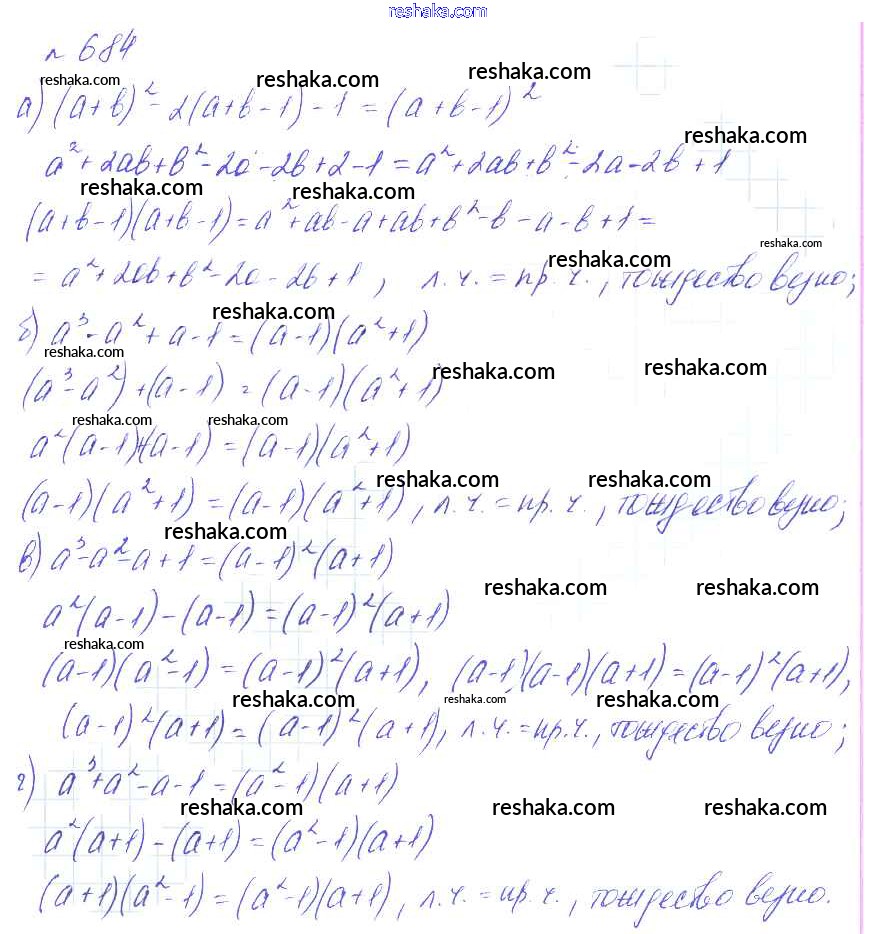 reshaka.com
№ 684
reshaka.com reshaka.com reshaka.com
а) (a+b)² - 2(a+b-1) - 1 = (a+b-1)²
reshaka.com
a²+2ab+b²-2a-2b+2-1 = a²+2ab+b²-2a-2b+1
reshaka.com reshaka.com
(a+b-1)(a+b-1) = a²+ab-a+ab+b²-b-a-b+1 =
reshaka.com reshaka.com
= a²+2ab+b²-2a-2b+1, л.ч. = пр.ч., тождество верно;
reshaka.com
б) a³-a²+a-1 = (a-1)(a²+1)
reshaka.com reshaka.com reshaka.com
(a³-a²)+(a-1) = (a-1)(a²+1)
reshaka.com reshaka.com
a²(a-1)+(a-1) = (a-1)(a²+1)
reshaka.com reshaka.com
(a-1)(a²+1) = (a-1)(a²+1), л.ч. = пр.ч., тождество верно;
reshaka.com
в) a³-a²-a+1 = (a-1)²(a+1)
reshaka.com reshaka.com
a²(a-1)-(a-1) = (a-1)²(a+1)
reshaka.com
(a-1)(a²-1) = (a-1)²(a+1), (a-1)(a-1)(a+1) = (a-1)²(a+1),
reshaka.com reshaka.com reshaka.com
(a-1)²(a+1) = (a-1)²(a+1), л.ч. = пр.ч., тождество верно;
г) a³+a²-a-1 = (a²-1)(a+1)
reshaka.com reshaka.com reshaka.com
a²(a+1)-(a+1) = (a²-1)(a+1)
(a+1)(a²-1) = (a²-1)(a+1), л.ч. = пр.ч., тождество верно.